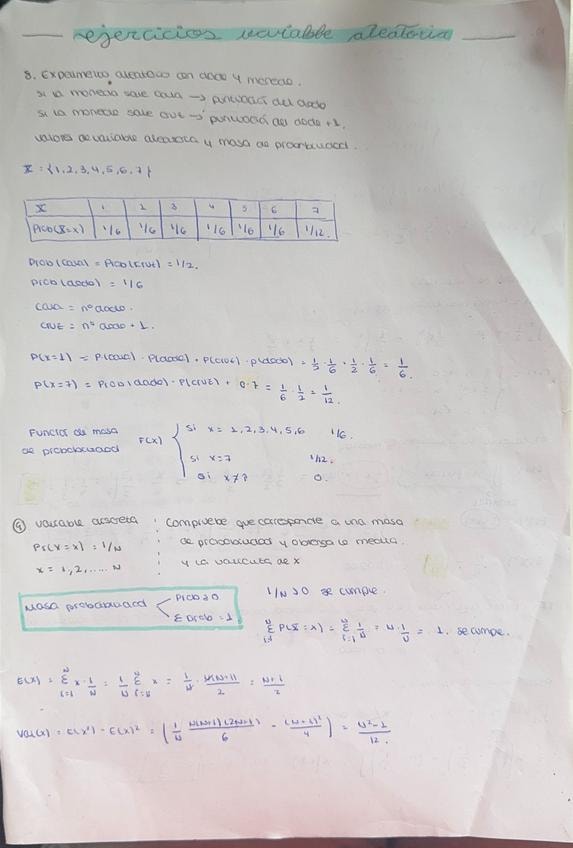 ejercicios variable aleatoria
8. Experimento aleatorio con dado y moneda.
si la moneda sale cara → puntuación del dado
si la moneda sale cruz → puntuación del dado +1.
valores de variable aleatoria y masa de probabilidad.
X = {1,2,3,4,5,6,7}
X 1 2 3 4 5 6 7
Prob(X=x) 1/6 1/6 1/6 1/6 1/6 1/6 1/12
Prob(cara) = Prob(cruz) = 1/2.
Prob(dado) = 1/6
cara = nº dado.
cruz = nº dado + 1.
P(x=1) = P(cara) · P(dado) + P(cruz) · P(dado) = 1/2 · 1/6 + 1/2 · 1/6 = 1/6.
P(x=7) = Prob(dado) · P(cruz) + 0·7 = 1/6 · 1/2 = 1/12.
Función de masa de probabilidad F(x)
si x = 1,2,3,4,5,6 1/6.
si x=7 1/12.
si x≠7 0.
9 Variable discreta : Compruebe que corresponde a una masa
Pr(X=x) = 1/N de probabilidad y obtenga la media
x = 1,2,..... N y la varianza de x
Masa probabilidad Prob ≥ 0 Σ Prob = 1
1/N > 0 se cumple.
Σ P(X=x) = Σ 1/N = N · 1/N = 1. se cumple.
E(x) = Σ x · 1/N = 1/N Σ x = 1/N · N(N+1)/2 = N+1/2
Var(x) = E(x²) - E(x)² = (1/N N(N+1)(2N+1)/6 - (N+1)²/4) = N²-1/12.